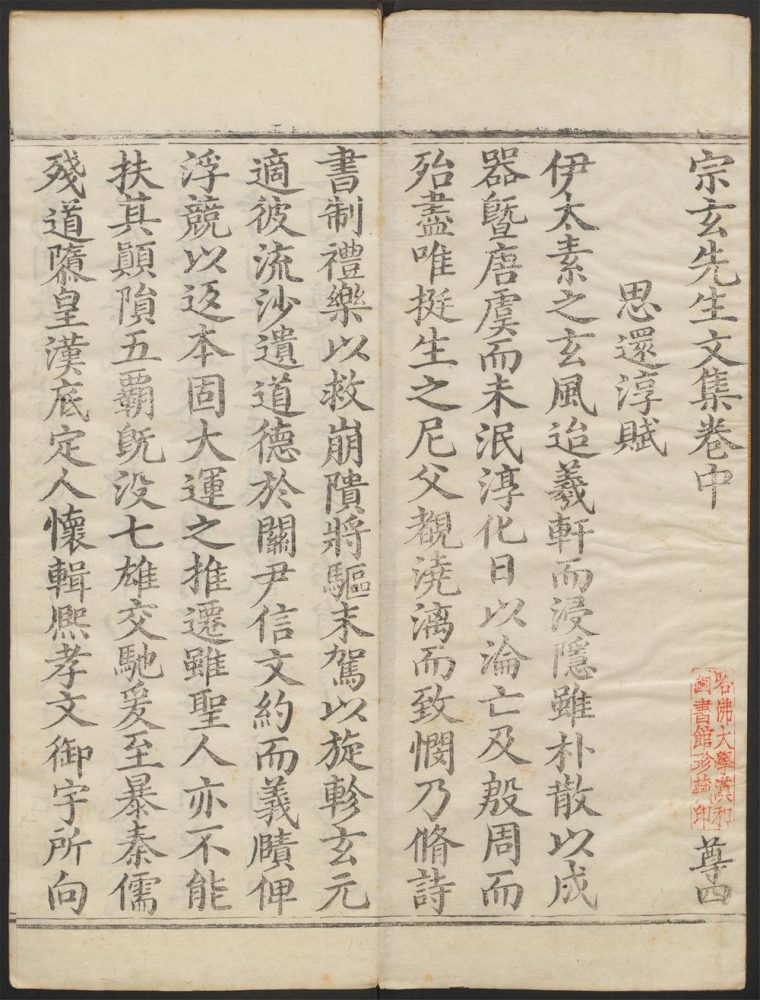 宗玄先生文集卷中
尊四
哈佛大學漢和
圖書館珍藏印
思還淳賦
伊太素之玄風迨羲軒而浸隱雖朴散以成
器曁唐虞而未泯淳化日以淪亡及殷周而
殆盡唯挺生之尼父覩澆漓而致憫乃脩詩
書制禮樂以救崩隤將驅末駕以旋軫玄元
適彼流沙遺道德於關尹信文約而義賾俾
浮競以返本固大運之推遷雖聖人亦不能
扶其顚隕五覇旣没七雄交馳爰至暴秦儒
殘道隳皇漢底定人懷輯熈孝文御宇所向